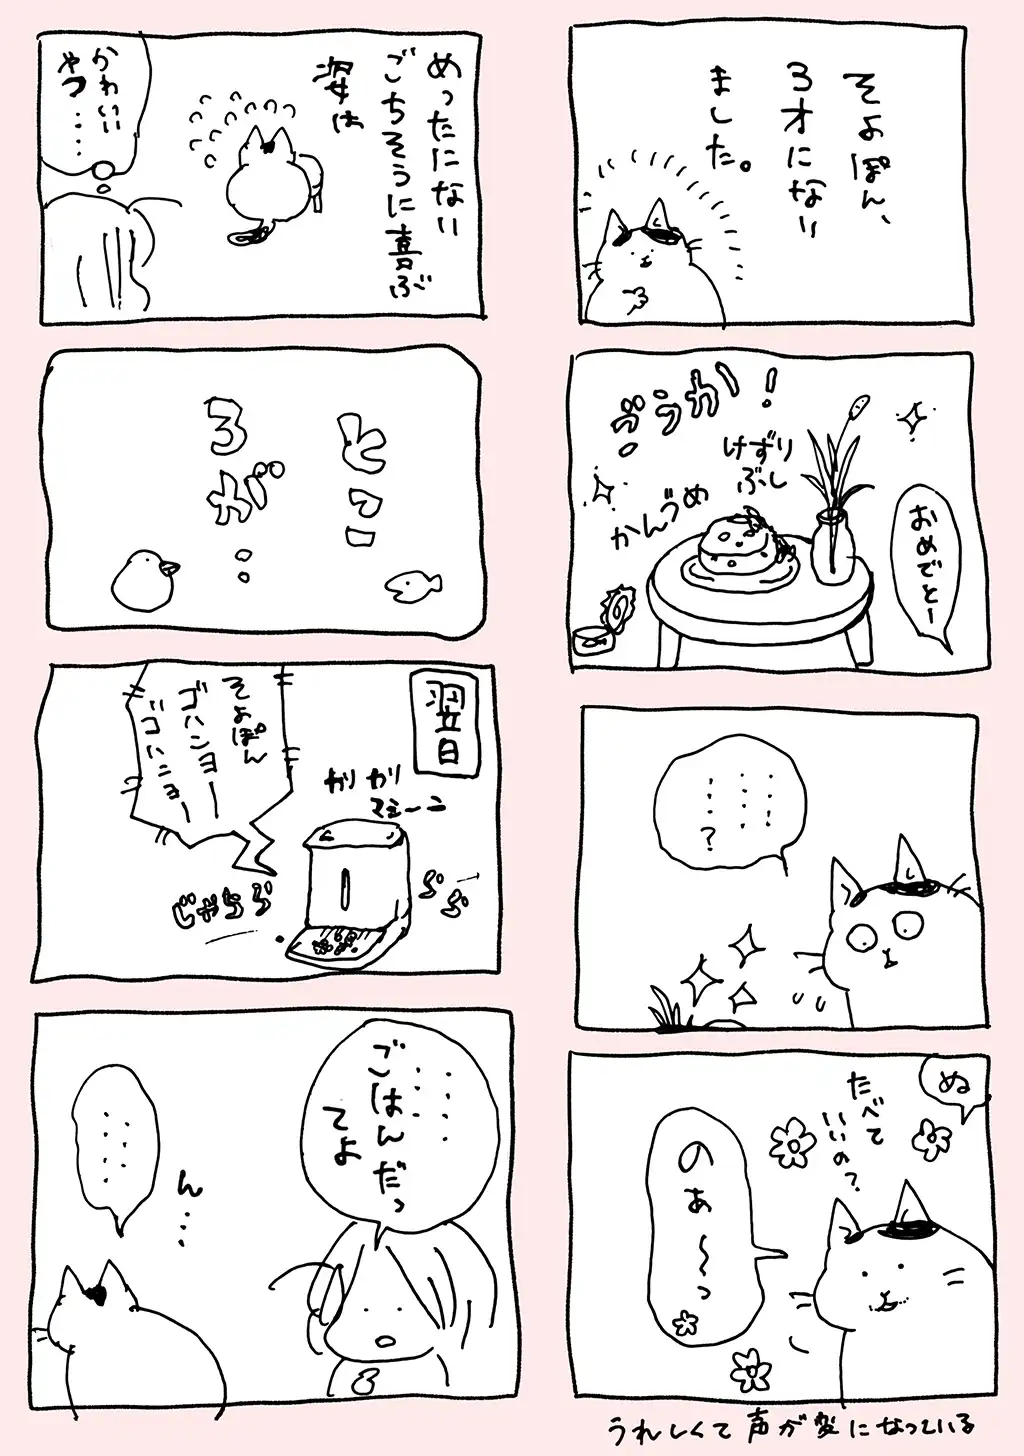 そよぽん、
3才になり
ました。
ごうか!
けずり
ぶし
かんづめ
おめでとー
………?
ぬ
たべて
いいの?
のぁ〜〜っ
うれしくて声が変になっている
めったにない
ごちそうに喜ぶ
姿は
かわいい
やつ……
ところが…
翌日
カリカリ
マシーン
そよぽん
ゴハンヨー
ゴハンヨー
じゃらら
ららー
………
ごはんだっ
てよ
ん…
………